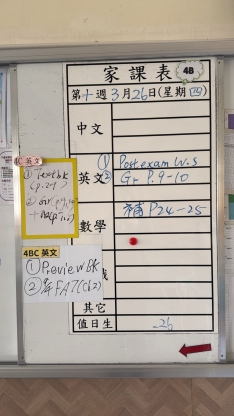 家課表
4B
第十週3月26日(星期四)
中文
英文
① Postexam W.S
② Gr P.9-10
數學
補 P24-25
其它
值日生
26
4C 英文
① Textbk
② Gr
4BC 英文
① Preview BK